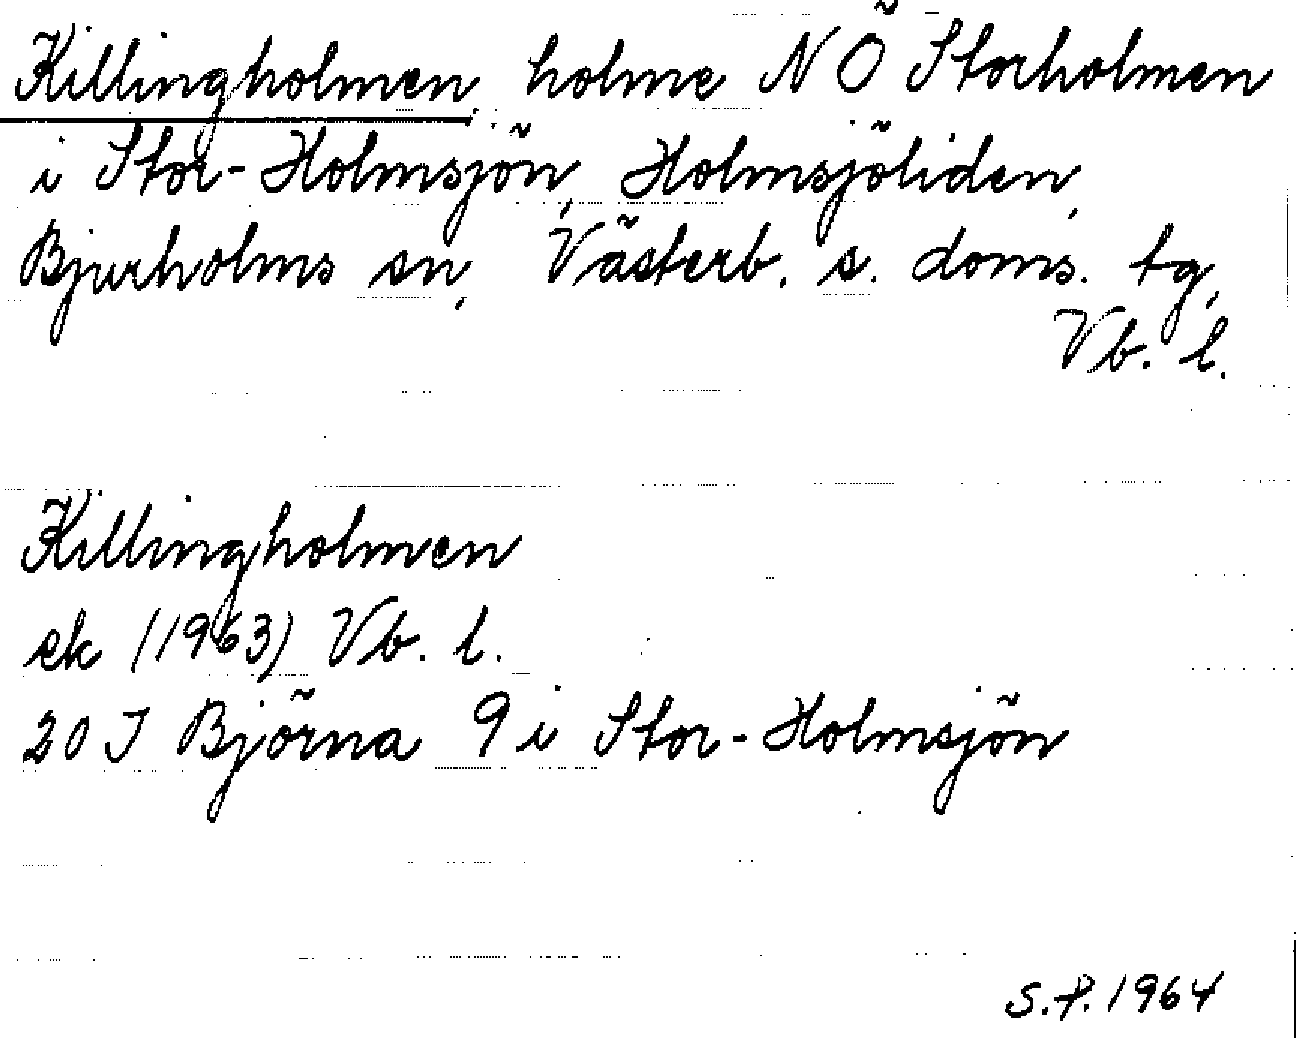 Killingholmen, holme NÖ Storholmen
i Stor-Holmsjön, Holmsjöliden,
Bjurholms sn, Västerb. s. doms. tg,
Vb. l.
Killingholmen
ek (1963) Vb. l.
20 J Björna 9 i Stor-Holmsjön
S.P. 1964